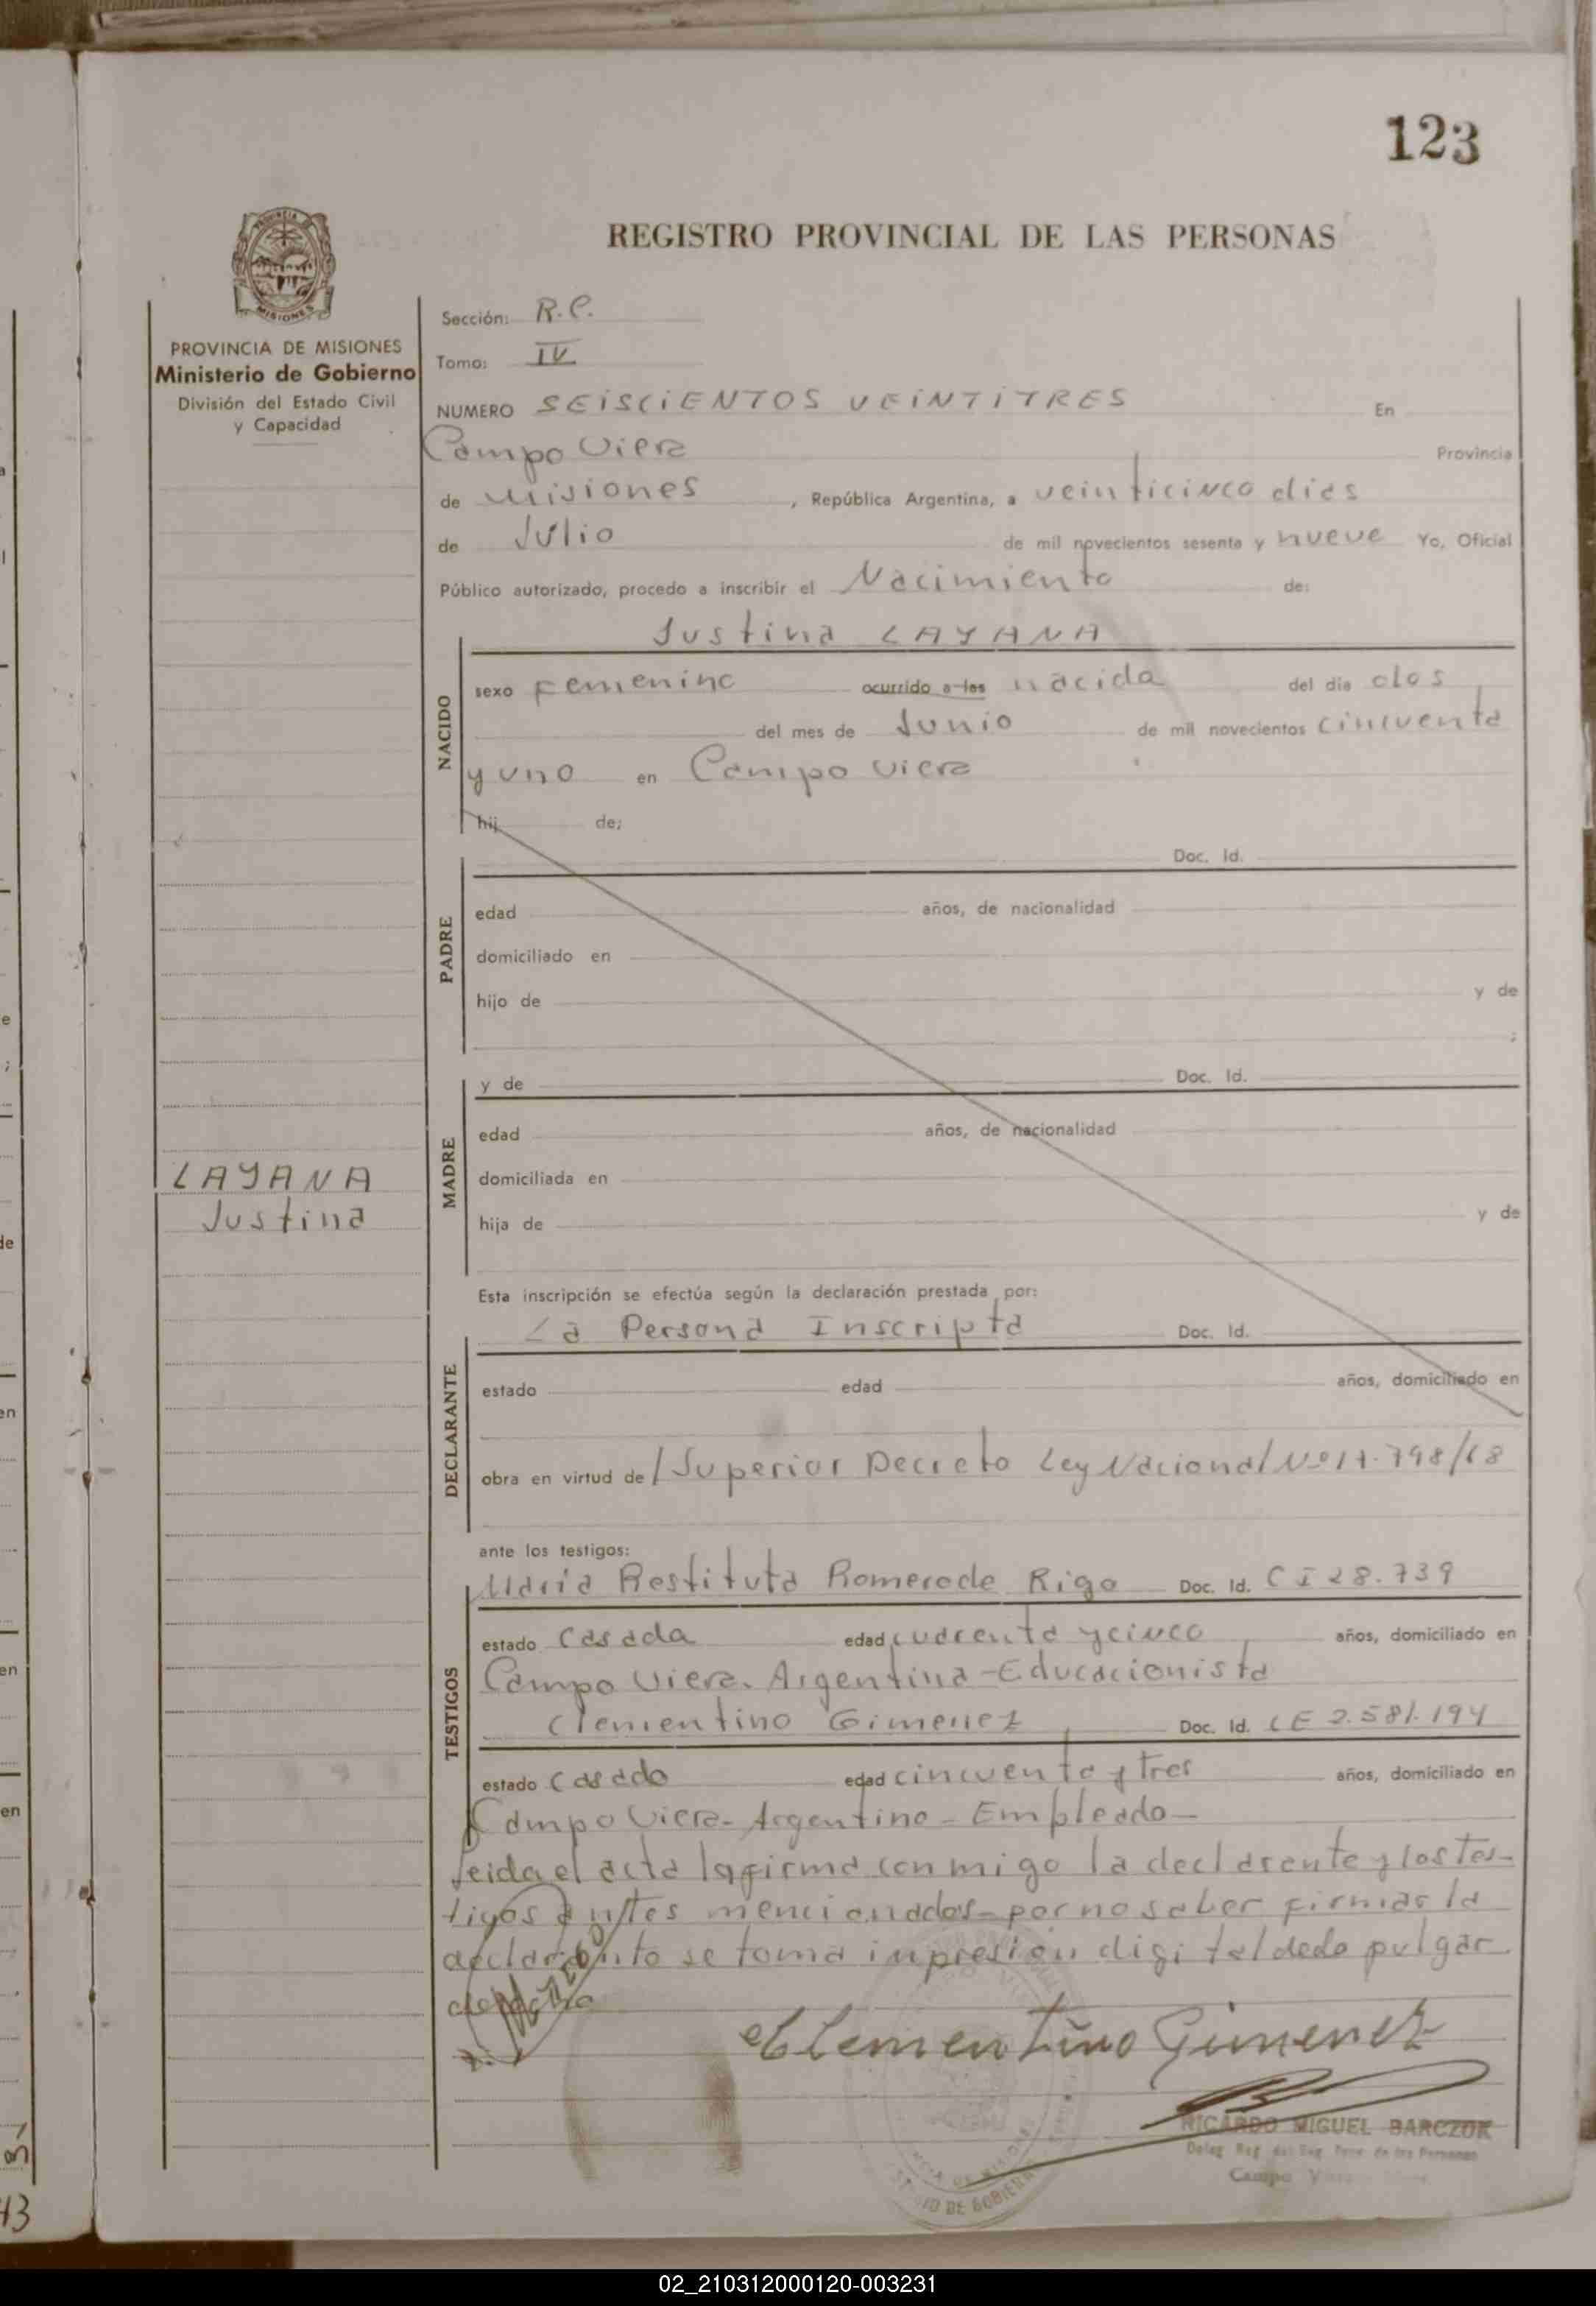 123
REGISTRO PROVINCIAL DE LAS PERSONAS
PROVINCIA DE MISIONES
Ministerio de Gobierno
División del Estado Civil
y Capacidad
Sección: R.C.
Tomo: IV
NUMERO SEISCIENTOS VEINTITRES En
Campo Viera Provincia
de Misiones, República Argentina, a veinticinco dias
de Julio de mil novecientos sesenta y nueve Yo, Oficial
Público autorizado, procedo a inscribir el Nacimiento de:
NACIDO
Justina LAYANA
sexo Femenino ocurrido a las nacida del dia dos
del mes de Junio de mil novecientos cincuenta
y uno en Campo Viera
hij de;
PADRE
Doc. Id.
edad años, de nacionalidad
domiciliado en
hijo de y de
;
MADRE
y de Doc. Id.
edad años, de nacionalidad
domiciliada en
hija de y de
LAYANA
Justina
Esta inscripción se efectúa según la declaración prestada por:
DECLARANTE
La Persona Inscripta Doc. Id.
estado edad años, domiciliado en
obra en virtud de / Superior Decreto Ley Nacional Nº 17.798/68
ante los testigos:
TESTIGOS
Maria Restituta Romero de Rigo Doc. Id. C I 28.739
estado Casada edad cuarenta y cinco años, domiciliado en
Campo Viera. Argentina - Educacionista
Clementino Gimenez Doc. Id. LE 2.581.194
estado Casado edad cincuenta y tres años, domiciliado en
Campo Viera - Argentino - Empleado -
leida el acta la firma conmigo la declarente y los tes-
tigos antes mencionados - por no saber firmar la
declarante se toma inpresion digital dedo pulgar
derecho
Clementino Gimenez
RICARDO MIGUEL BARCZUK
Campo
02_210312000120-003231